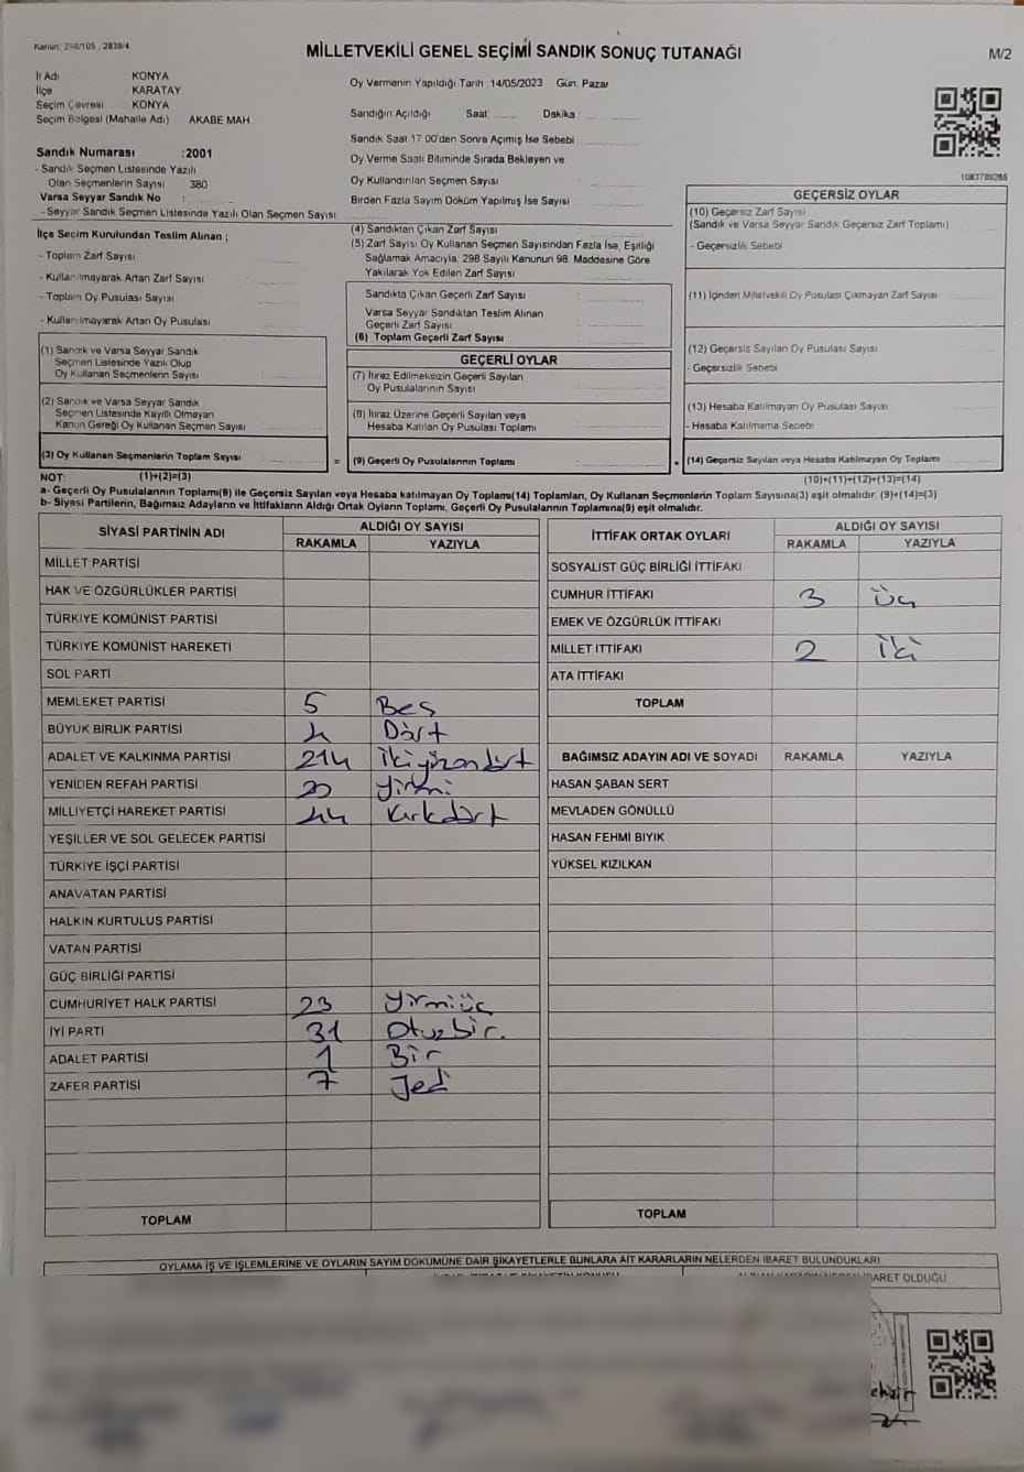 Kanun: 298/105 , 2839/4
MİLLETVEKİLİ GENEL SEÇİMİ SANDIK SONUÇ TUTANAĞI
M/2
İl Adı KONYA
İlçe KARATAY
Seçim Çevresi KONYA
Seçim Bölgesi (Mahalle Adı) AKABE MAH.
Sandık Numarası :2001
- Sandık Seçmen Listesinde Yazılı
Olan Seçmenlerin Sayısı 380
Varsa Seyyar Sandık No :
- Seyyar Sandık Seçmen Listesinde Yazılı Olan Seçmen Sayısı
İlçe Seçim Kurulundan Teslim Alınan ;
- Toplam Zarf Sayısı
- Kullanılmayarak Artan Zarf Sayısı
- Toplam Oy Pusulası Sayısı
- Kullanılmayarak Artan Oy Pusulası
(1) Sandık ve Varsa Seyyar Sandık
Seçmen Listesinde Yazılı Olup
Oy Kullanan Seçmenlerin Sayısı
(2) Sandık ve Varsa Seyyar Sandık
Seçmen Listesinde Kayıtlı Olmayan
Kanun Gereği Oy Kullanan Seçmen Sayısı
(3) Oy Kullanan Seçmenlerin Toplam Sayısı
Oy Vermenin Yapıldığı Tarih :14/05/2023 Gün: Pazar
Sandığın Açıldığı Saat: Dakika :
Sandık Saat 17:00'den Sonra Açımış İse Sebebi
Oy Verme Saati Bitiminde Sırada Bekleyen ve
Oy Kullandırılan Seçmen Sayısı
Birden Fazla Sayım Döküm Yapılmış İse Sayısı
(4) Sandıktan Çıkan Zarf Sayısı
(5) Zarf Sayısı Oy Kullanan Seçmen Sayısından Fazla İse, Eşitliği
Sağlamak Amacıyla, 298 Sayılı Kanunun 98. Maddesine Göre
Yakılarak Yok Edilen Zarf Sayısı
Sandıkta Çıkan Geçerli Zarf Sayısı
Varsa Seyyar Sandıktan Teslim Alınan
Geçerli Zarf Sayısı
(6) Toplam Geçerli Zarf Sayısı
GEÇERLİ OYLAR
(7) İtiraz Edilmeksizin Geçerli Sayılan
Oy Pusulalarının Sayısı
(8) İtiraz Üzerine Geçerli Sayılan veya
Hesaba Katılan Oy Pusulası Toplamı
= (9) Geçerli Oy Pusulalarının Toplamı
1083789285
GEÇERSİZ OYLAR
(10) Geçersiz Zarf Sayısı
(Sandık ve Varsa Seyyar Sandık Geçersiz Zarf Toplamı)
- Geçersizlik Sebebi
(11) İçinden Milletvekili Oy Pusulası Çıkmayan Zarf Sayısı
(12) Geçersis Sayılan Oy Pusulası Sayısı
- Geçersizlik Sebebi
(13) Hesaba Katılmayan Oy Pusulası Sayısı
- Hesaba Katılmama Sebebi
+ (14) Geçersiz Sayılan veya Hesaba Katılmayan Oy Toplamı
NOT: (1)+(2)=(3)
(10)+(11)+(12)+(13)=(14)
a- Geçerli Oy Pusulalarının Toplamı(9) ile Geçersiz Sayılan veya Hesaba katılmayan Oy Toplamı(14) Toplamları, Oy Kullanan Seçmenlerin Toplam Sayısına(3) eşit olmalıdır. (9)+(14)=(3)
b- Siyasi Partilerin, Bağımsız Adayların ve İttifakların Aldığı Ortak Oyların Toplamı, Geçerli Oy Pusulalarının Toplamına(9) eşit olmalıdır.
SİYASİ PARTİNİN ADI ALDIĞI OY SAYISI
RAKAMLA YAZIYLA
MİLLET PARTİSİ
HAK VE ÖZGÜRLÜKLER PARTİSİ
TÜRKİYE KOMÜNİST PARTİSİ
TÜRKİYE KOMÜNİST HAREKETİ
SOL PARTİ
MEMLEKET PARTİSİ 5 Beş
BÜYÜK BİRLİK PARTİSİ 4 Dört
ADALET VE KALKINMA PARTİSİ 214 İkiyüzondört
YENİDEN REFAH PARTİSİ 20 Yirmi
MİLLİYETÇİ HAREKET PARTİSİ 44 Kırkdört
YEŞİLLER VE SOL GELECEK PARTİSİ
TÜRKİYE İŞÇİ PARTİSİ
ANAVATAN PARTİSİ
HALKIN KURTULUŞ PARTİSİ
VATAN PARTİSİ
GÜÇ BİRLİĞİ PARTİSİ
CUMHURİYET HALK PARTİSİ 23 Yirmiüç
İYİ PARTİ 31 Otuzbir.
ADALET PARTİSİ 1 Bir
ZAFER PARTİSİ 7 Yedi
TOPLAM
İTTİFAK ORTAK OYLARI ALDIĞI OY SAYISI
RAKAMLA YAZIYLA
SOSYALIST GÜÇ BİRLİĞİ İTTİFAKI
CUMHUR İTTİFAKI 3 Üç
EMEK VE ÖZGÜRLÜK İTTİFAKI
MİLLET İTTİFAKI 2 İki
ATA İTTİFAKI
TOPLAM
BAĞIMSIZ ADAYIN ADI VE SOYADI RAKAMLA YAZIYLA
HASAN ŞABAN SERT
MEVLADEN GÖNÜLLÜ
HASAN FEHMİ BIYIK
YÜKSEL KIZILKAN
TOPLAM
OYLAMA İŞ VE İŞLEMLERİNE VE OYLARIN SAYIM DÖKÜMÜNE DAİR ŞİKAYETLERLE BUNLARA AİT KARARLARIN NELERDEN İBARET BULUNDUKLARI
İBARET OLDUĞU